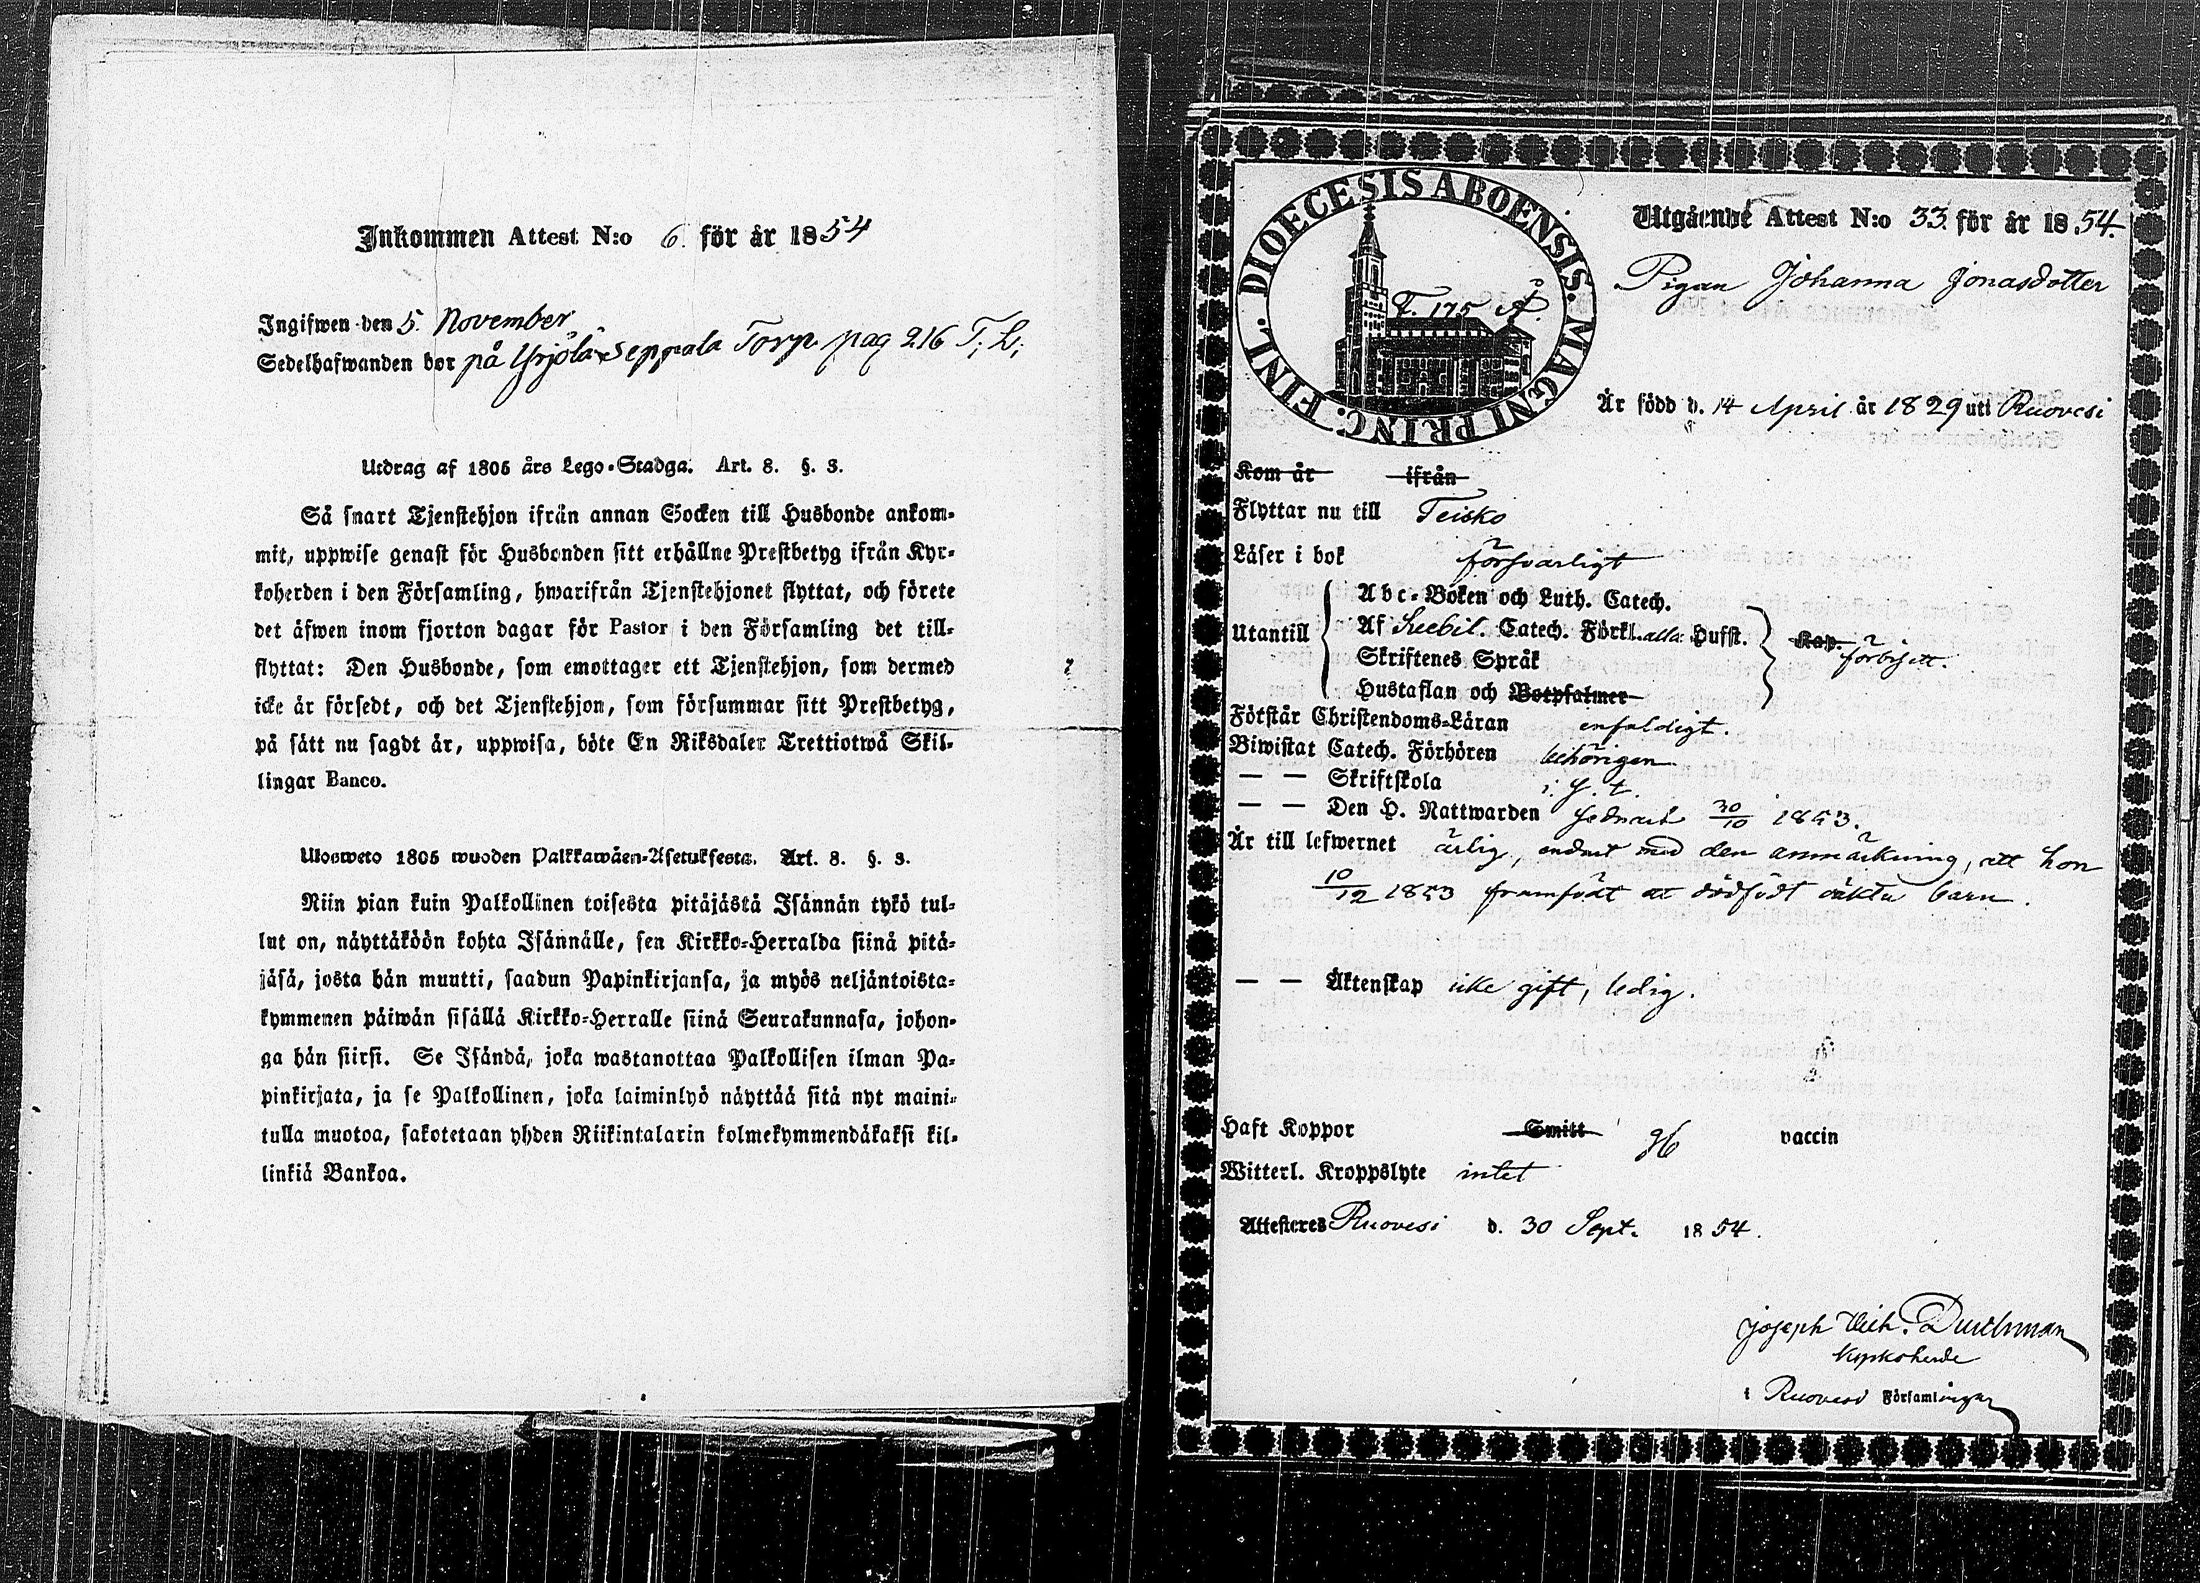 Inkommen Attest N:o 6. för år 1854
Ingifwen den 5. November
Sedelhafwanden bor på Yrjölä Seppälä Torp pag 216 T. L.
Utdrag af 1805 års Lego-Stadga. Art. 8. §. 3.
Så snart Tjenstehjon ifrån annan Socken till Husbonde ankom-
mit, uppwise genast för Husbonden sitt erhållne Prestbetyg ifrån Kyr-
koherden i den Församling, hwarifrån Tjenstehjonet flyttat, och förete
det äfwen inom fjorton dagar för Pastor i den Församling det till-
flyttat: Den Husbonde, som emottager ett Tjenstehjon, som dermed
icke är försedt, och det Tjenstehjon, som försummar sitt Prestbetyg,
på sätt nu sagdt är, uppwisa, böte En Riksdaler Trettiotwå Skil-
lingar Banco.
Ulosweto 1805 wuoden Palkkawäen-Asetuksesta. Art. 8. §. 3.
Niin pian kuin Palkollinen toisesta pitäjästä Isännän tykö tul-
lut on, näyttäköön kohta Isännälle, sen Kirkko-Herralda siinä pitä-
jäsä, josta hän muutti, saadun Papinkirjansa, ja myös neljäntoista-
kymmenen päiwän sisällä Kirkko-Herralle siinä Seurakunnasa, johon-
ga hän siirsi. Se Isändä, joka wastanottaa Palkollisen ilman Pa-
pinkirjata, ja se Palkollinen, joka laiminlyö näyttää sitä nyt maini-
tulla muotoa, sakotetaan yhden Riikintalarin kolmekymmendäkaksi kil-
linkiä Bankoa.
DIOECESIS ABOENSIS. MAGNI PRINC. FINL.
T. 175 Å.
Utgående Attest N:o 33. för år 1854.
Pigan Johanna Jonasdotter
Är född d. 14 April år 1829 uti Ruovesi
Kom år ifrån
Flyttar nu till Teisko
Läser i bok försvarligt
Utantill
Abc-Boken och Luth. Catech.
Af Svebil. Catech. Förkl. alla Hufst.
Skriftenes Språk
Hustaflan och Botpsalmer
Kap.
Förstår Christendoms-Läran enfaldigt.
Biwistat Catech. Förhören behörigen
— — Skriftskola i. s. t.
— — Den H. Nattwarden sednast 30/10 1853.
Är till lefwernet ärlig, endast med den anmärkning, att hon
10/12 1853 framfödt et dödfödt oäkta barn.
— — Äktenskap icke gift, ledig.
Haft Koppor Smitt vaccin
Witterl. Kroppslyte intet
Attesteres Ruovesi d. 30 Sept. 1854.
Joseph Wilh. Durchman
Kyrkoherde
i Ruovesi Församlingar